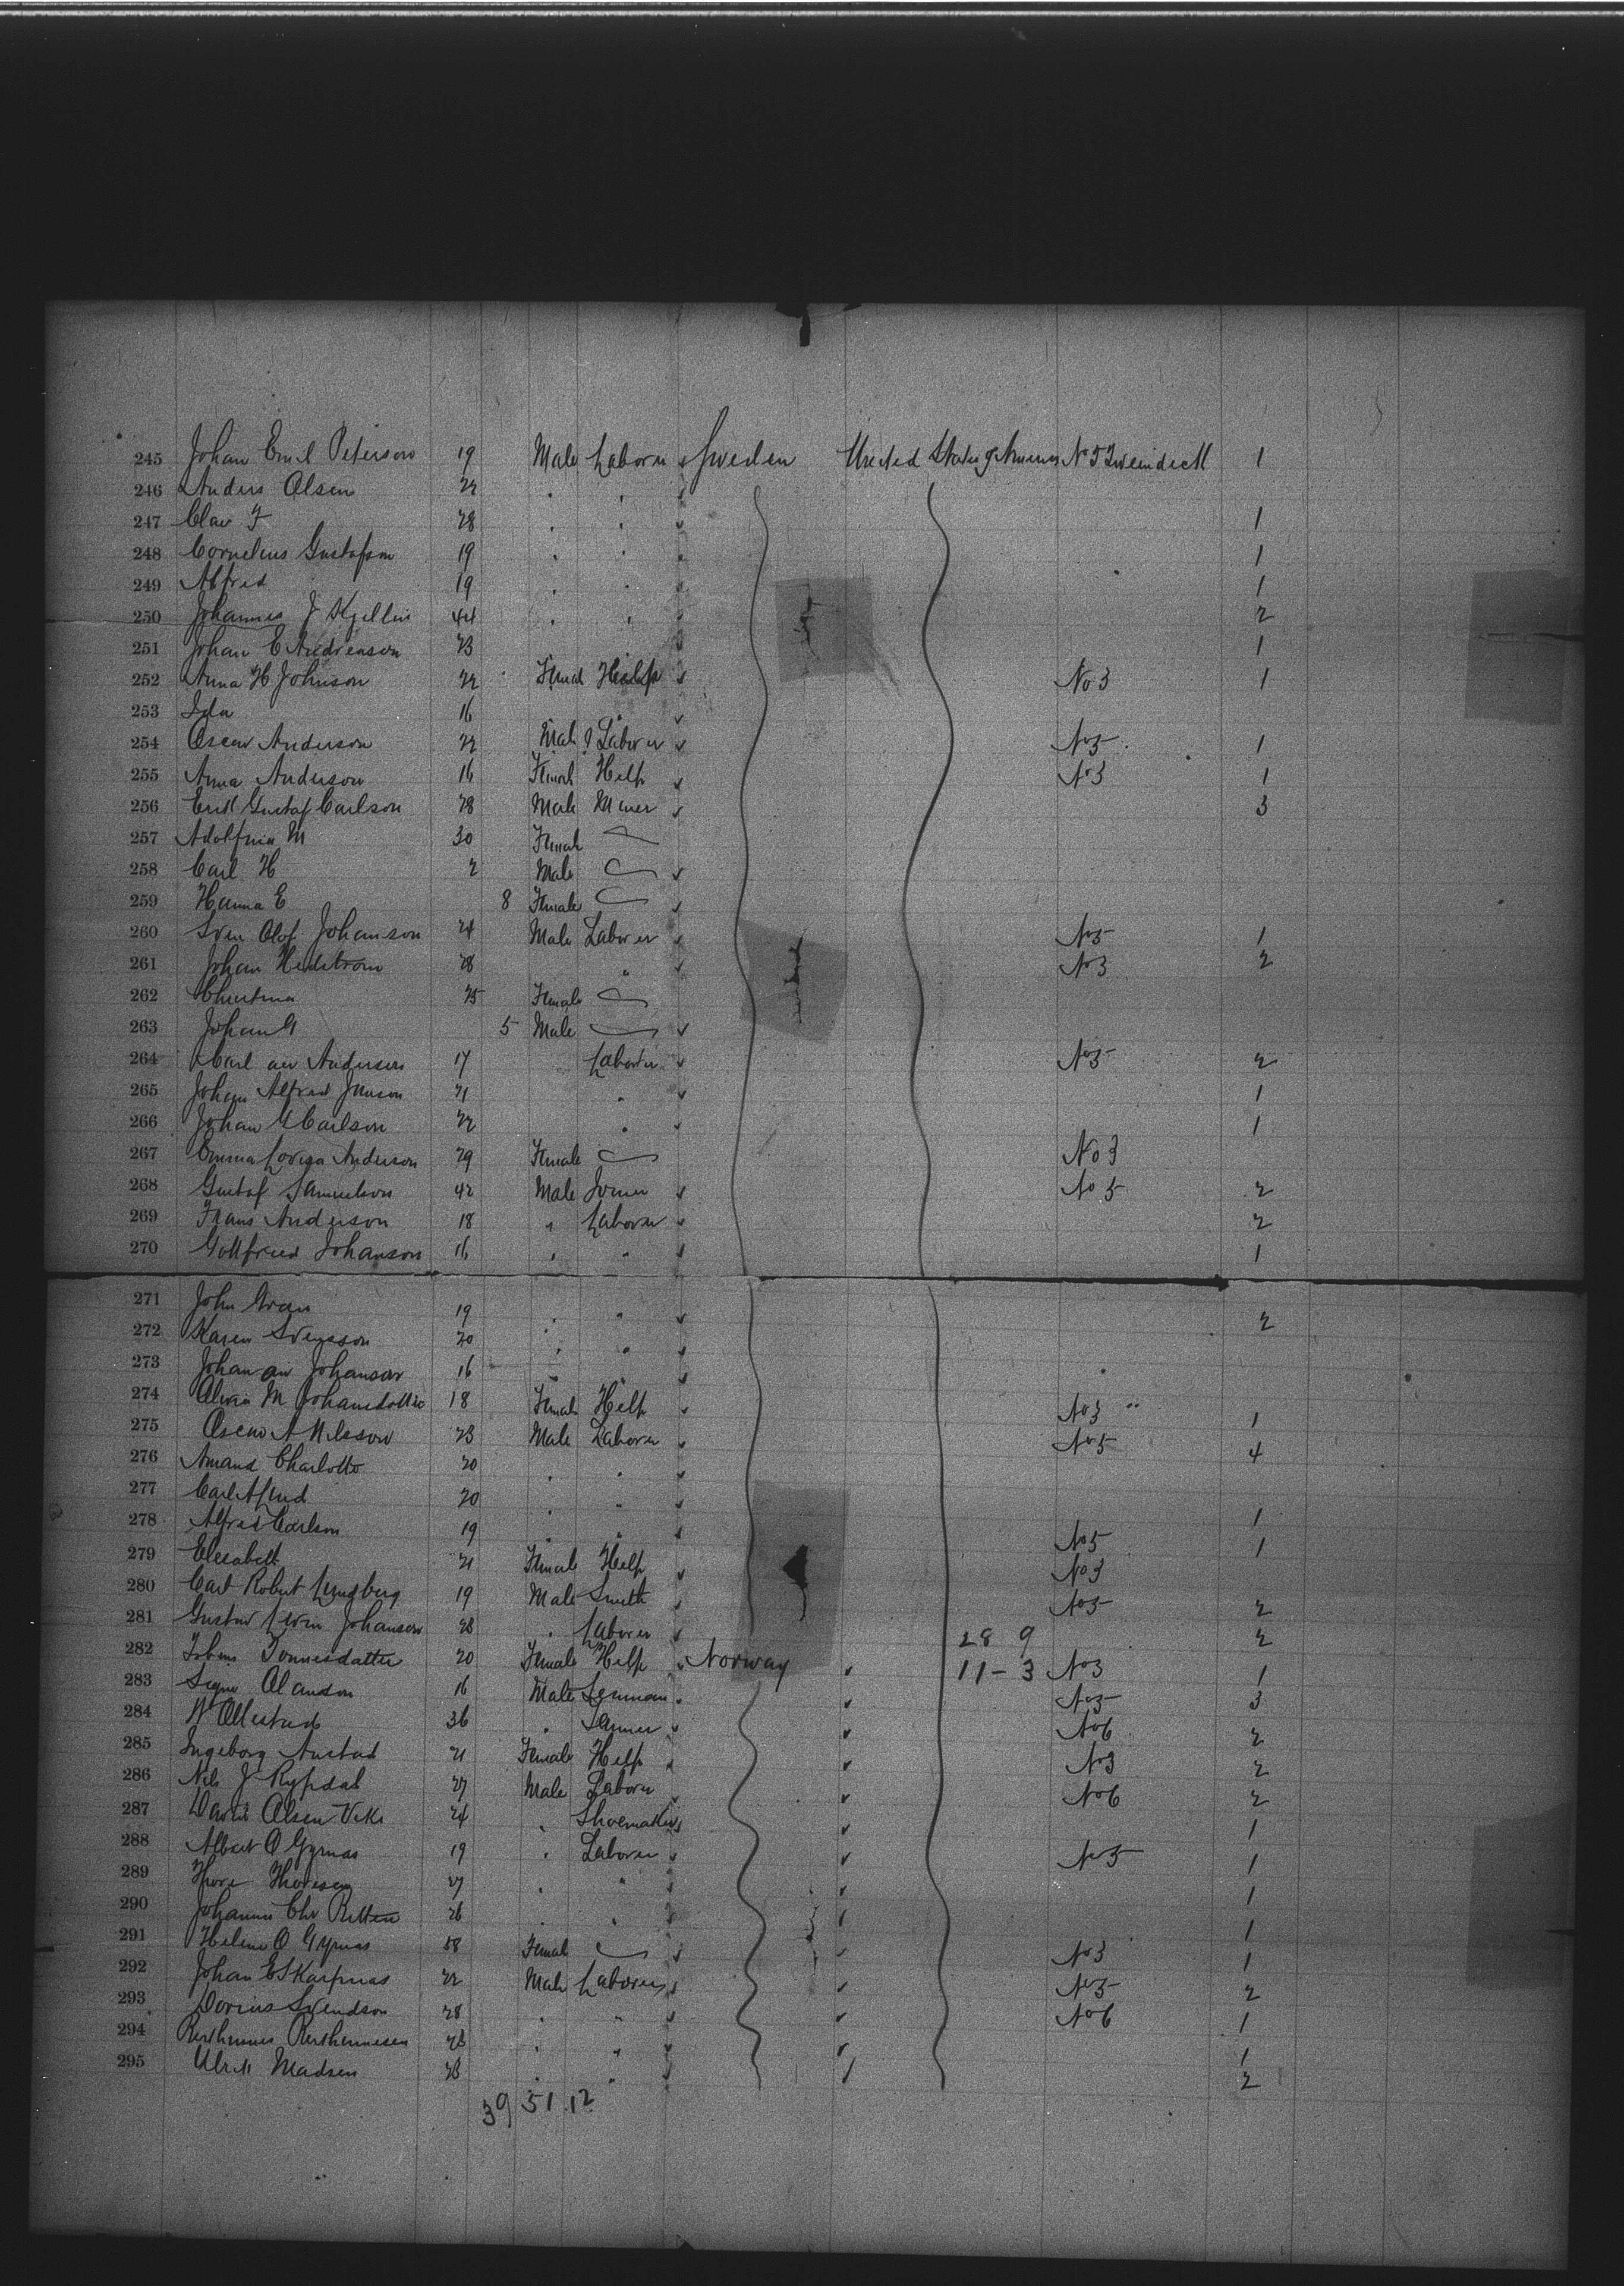 245 Johan Emil Peterson 19 Male Laborer Sweden United States of America No 5 Tweindeck 1
246 Anders Olsen 22 " "
247 Clav F 28 " " 1
248 Cornelius Gustafson 19 " " 1
249 Alfred 19 " " 1
250 Johannes J Kjellin 44 " " 2
251 Johan E Andreason 23 1
252 Anna H Johnson 22 Femal Help No 3 1
253 Ida 16 "
254 Oscar Anderson 22 Male Laborer No 5 1
255 Anna Anderson 16 Female Help No 3 1
256 Erik Gustaf Carlson 28 Male Miner 3
257 Adolfina M 30 Female
258 Carl H 2 Male
259 Hanna E 8 Female
260 Sven Olof Johanson 24 Male Laborer No 5 1
261 Johan Hedstrom 28 " No 3 2
262 Christina 25 Female
263 Johan G 5 Male
264 Carl Anderson 17 Laborer No 5 2
265 Johan Alfred Janson 21 " 1
266 Johan G Carlson 22 " 1
267 Emma Lovisa Anderson 29 Female No 3
268 Gustaf Samuelson 42 Male Joiner No 5 2
269 Frans Anderson 18 " Laborer 2
270 Gottfried Johanson 16 " " 1
271 John Gran 19 " " 2
272 Karen Svensson 20 " "
273 Johan Johanson 16 " "
274 M Johansdotter 18 Female Help No 3 " 1
275 Oscar A Nilsson 23 Male Laborer No 5 4
276 Amand Charlotte 20 " "
277 Carl Alfred 20 " " 1
278 Alfred Carlson 19 " " No 5 1
279 Elisabeth 21 Female Help No 3
280 Carl Robert Lundberg 19 Male Smith No 5 2
281 Gustav Johanson 28 " Laborer 28 9 2
282 Tonnesdatter 20 Female Help Norway 11-3 No 3 1
283 Signe 16 Male No 5 3
284 36 " No 6 2
285 Ingeborg Austad 21 Female Help No 3 2
286 Nils J Rypdal 27 Male Laborer No 6 2
287 Olsen 24 " Shoemaker 1
288 Albert O Gyrmas 19 " Laborer No 5 1
289 Thore Thoresen 27 " " 1
290 Johannes Chr 26 " " 1
291 Heline O Gyrmas 58 Femal No 3 1
292 Johan 22 Male Laborer No 5 2
293 Dorius Svendson 28 " " No 6 1
294 23 " " 1
295 Ulrik Madsen 23 " " 2
39 51 12